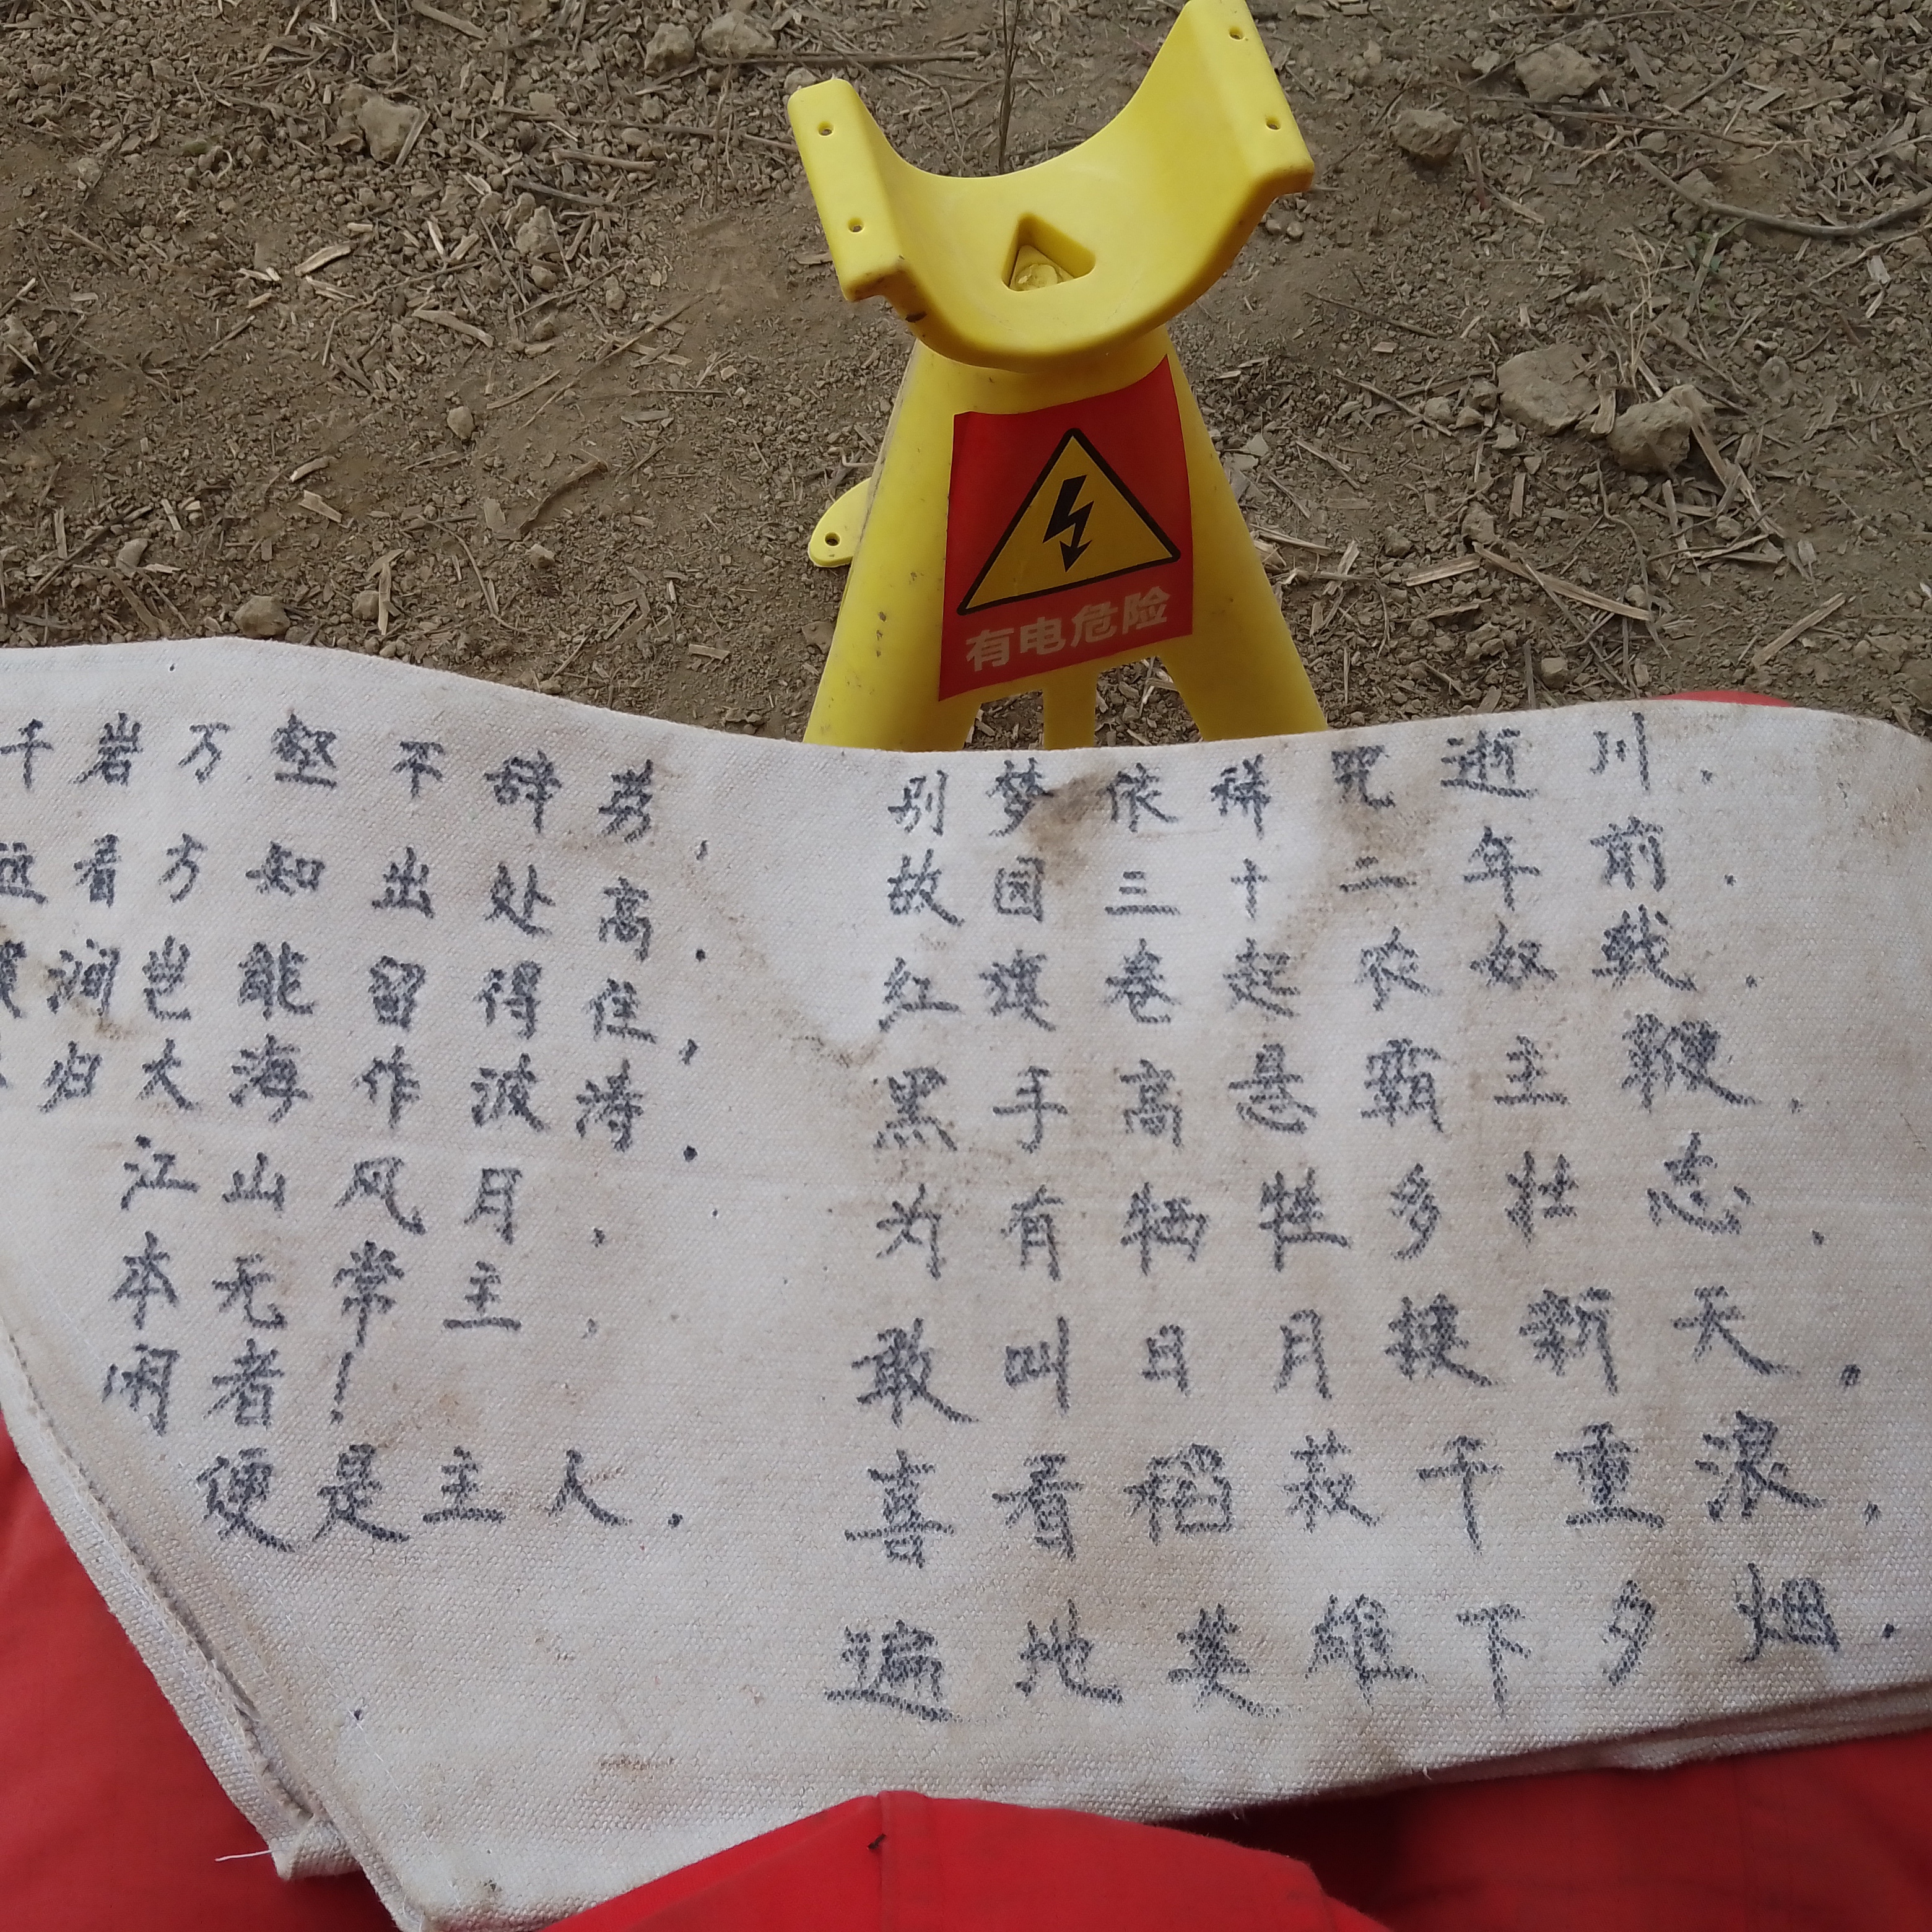 有电危险
千岩万壑不辞劳,
远看方知出处高.
涧岂能留得住,
归大海作波涛.
江山风月,
本无常主,
闲者!
便是主人.
别梦依稀咒逝川.
故园三十二年前.
红旗卷起农奴戟.
黑手高悬霸主鞭.
为有牺牲多壮志.
敢叫日月换新天.
喜看稻菽千重浪,
遍地英雄下夕烟.